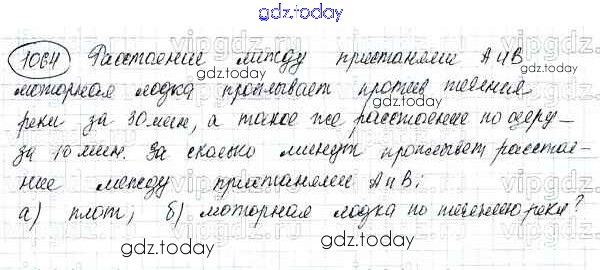 gdz.today
1064 Расстояние между пристанями А и В
gdz.today
моторная лодка проплывает против течения
gdz.today
реки за 30 мин, а такое же расстояние по озеру –
за 10 мин. За сколько минут проплывёт расстоя-
gdz.today
ние между пристанями А и В:
а) плот; б) моторная лодка по течению реки?
gdz.today